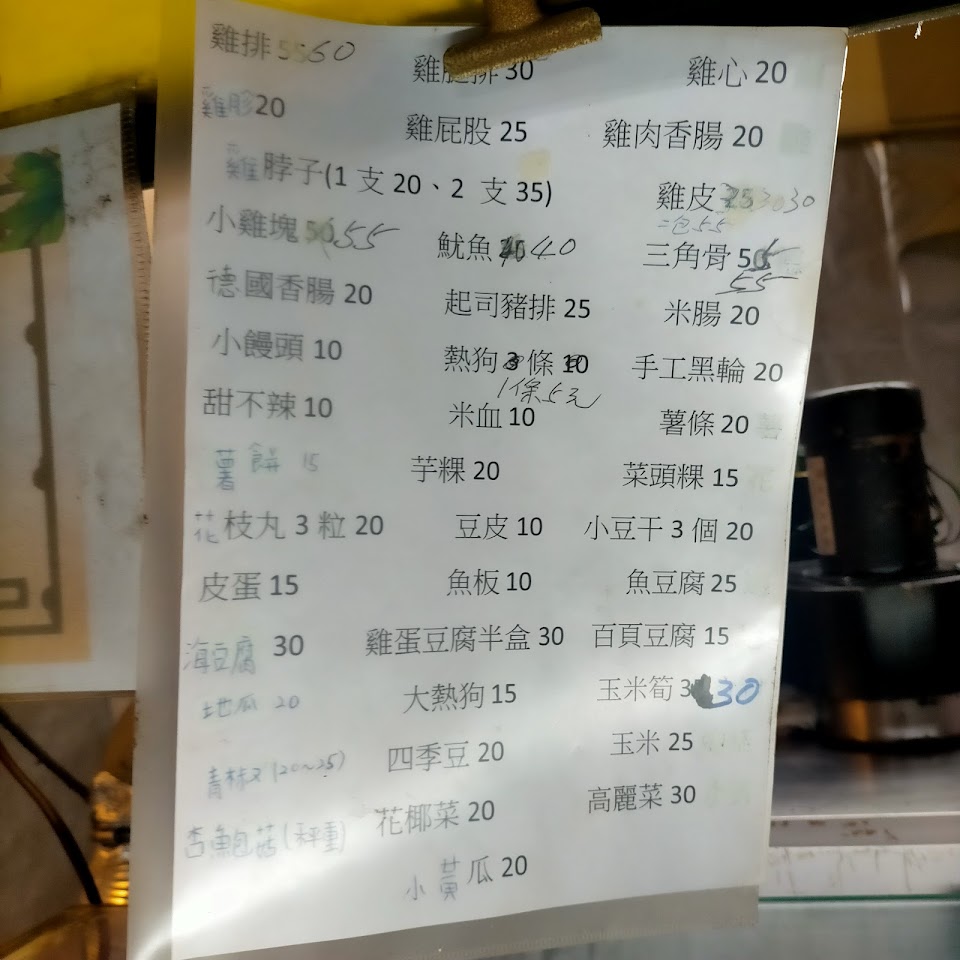 雞排 55 60 雞腿排 30 雞心 20
雞胗 20 雞屁股 25 雞肉香腸 20
雞脖子(1 支 20、2 支 35) 雞皮 25 30 30
小雞塊 50 55 魷魚 40 二包55 三角骨 50 55
德國香腸 20 起司豬排 25 米腸 20
小饅頭 10 熱狗 3 條 10 手工黑輪 20
1條5元
甜不辣 10 米血 10 薯條 20
薯餅 15 芋粿 20 菜頭粿 15
花枝丸 3 粒 20 豆皮 10 小豆干 3 個 20
皮蛋 15 魚板 10 魚豆腐 25
海豆腐 30 雞蛋豆腐半盒 30 百頁豆腐 15
地瓜 20 大熱狗 15 玉米筍 30
青椒 (20~25) 四季豆 20 玉米 25
杏鮑菇(秤重) 花椰菜 20 高麗菜 30
小黃瓜 20